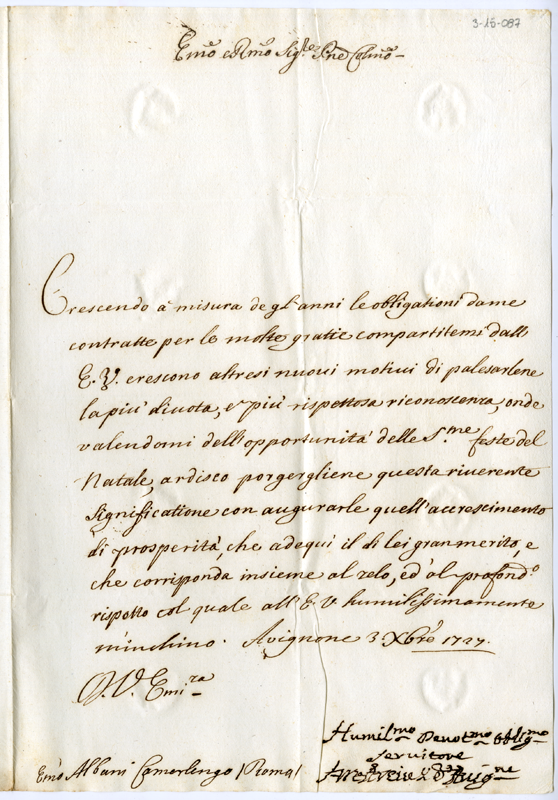 3-15-087
Emo e Rmo Sigre Pne Colmo
Crescendo à misura degl'anni le obligationi dame
contratte per le molte gratie compartitemi dall'
E. V. crescono altresi nuoui motiui di palesarlene
la più diuota, e più rispettosa riconoscenza, onde
valendomi dell'opportunità delle S.me feste del
Natale, ardisco porgergliene questa riuerente
significatione con augurarle quell'accrescimento
di prosperità, che adequi il di lei gran merito, e
che corrisponda insieme al zelo, ed'al profondo
rispetto col quale all'E. V. humilissimamente
m'inchino. Avignone 3 Xbre 1727.
D. V. Emira
Humilmo Deuotmo Obligmo
seruitore
Emo Albani Camerlengo /Roma/